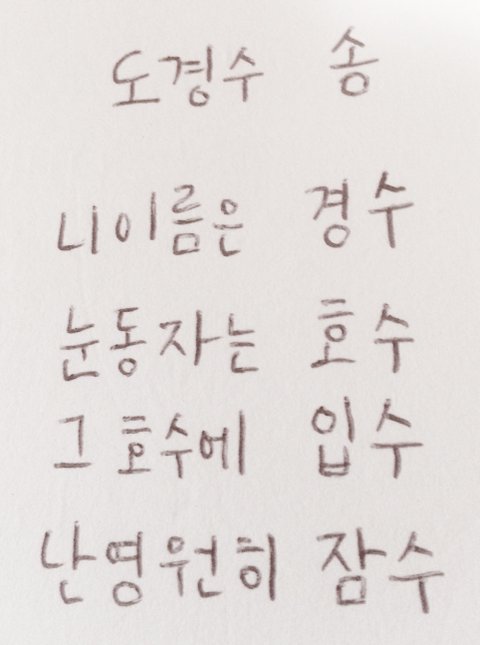 도경수 송
니이름은 경수
눈동자는 호수
그 호수에 입수
난영원히 잠수